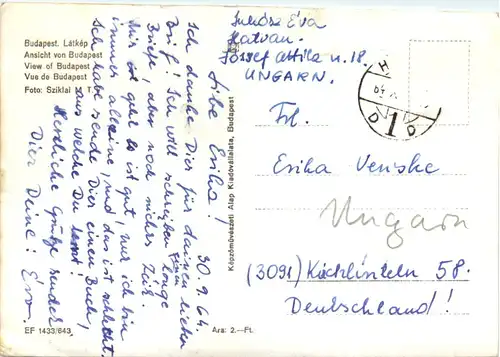 Budapest. Látkép
Ansicht von Budapest
View of Budapest
Vue de Budapest
Foto: Sziklai
30. 9. 64.
Libe Erika!
Ich danke Dier für deinen lieben
Brif! Ich will schreiben lange
Briefe, aber noch nichts Zeit.
Mir ist geht es ist gut, nur ich bin
immer alleine, und das ist schlecht.
Ich habe sende Dier einen Buch,
aus welche Du lernst!
Herzliche Grüße sendet
Dier Deine: Éva.
EF 1433/643
Ara: 2.–Ft.
Képzőművészeti Alap Kiadóvállalata, Budapest
Éva
Hatvan.
József Attila u. 18.
UNGARN.
Frl.
Erika Venske
Ungarn
(3091) Kirchlinteln 58.
Deutschland!